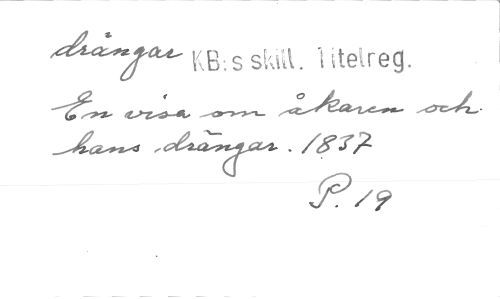 drängar KB:s skill. Titelreg.
En visa om åkaren och
hans drängar. 1837
P. 19